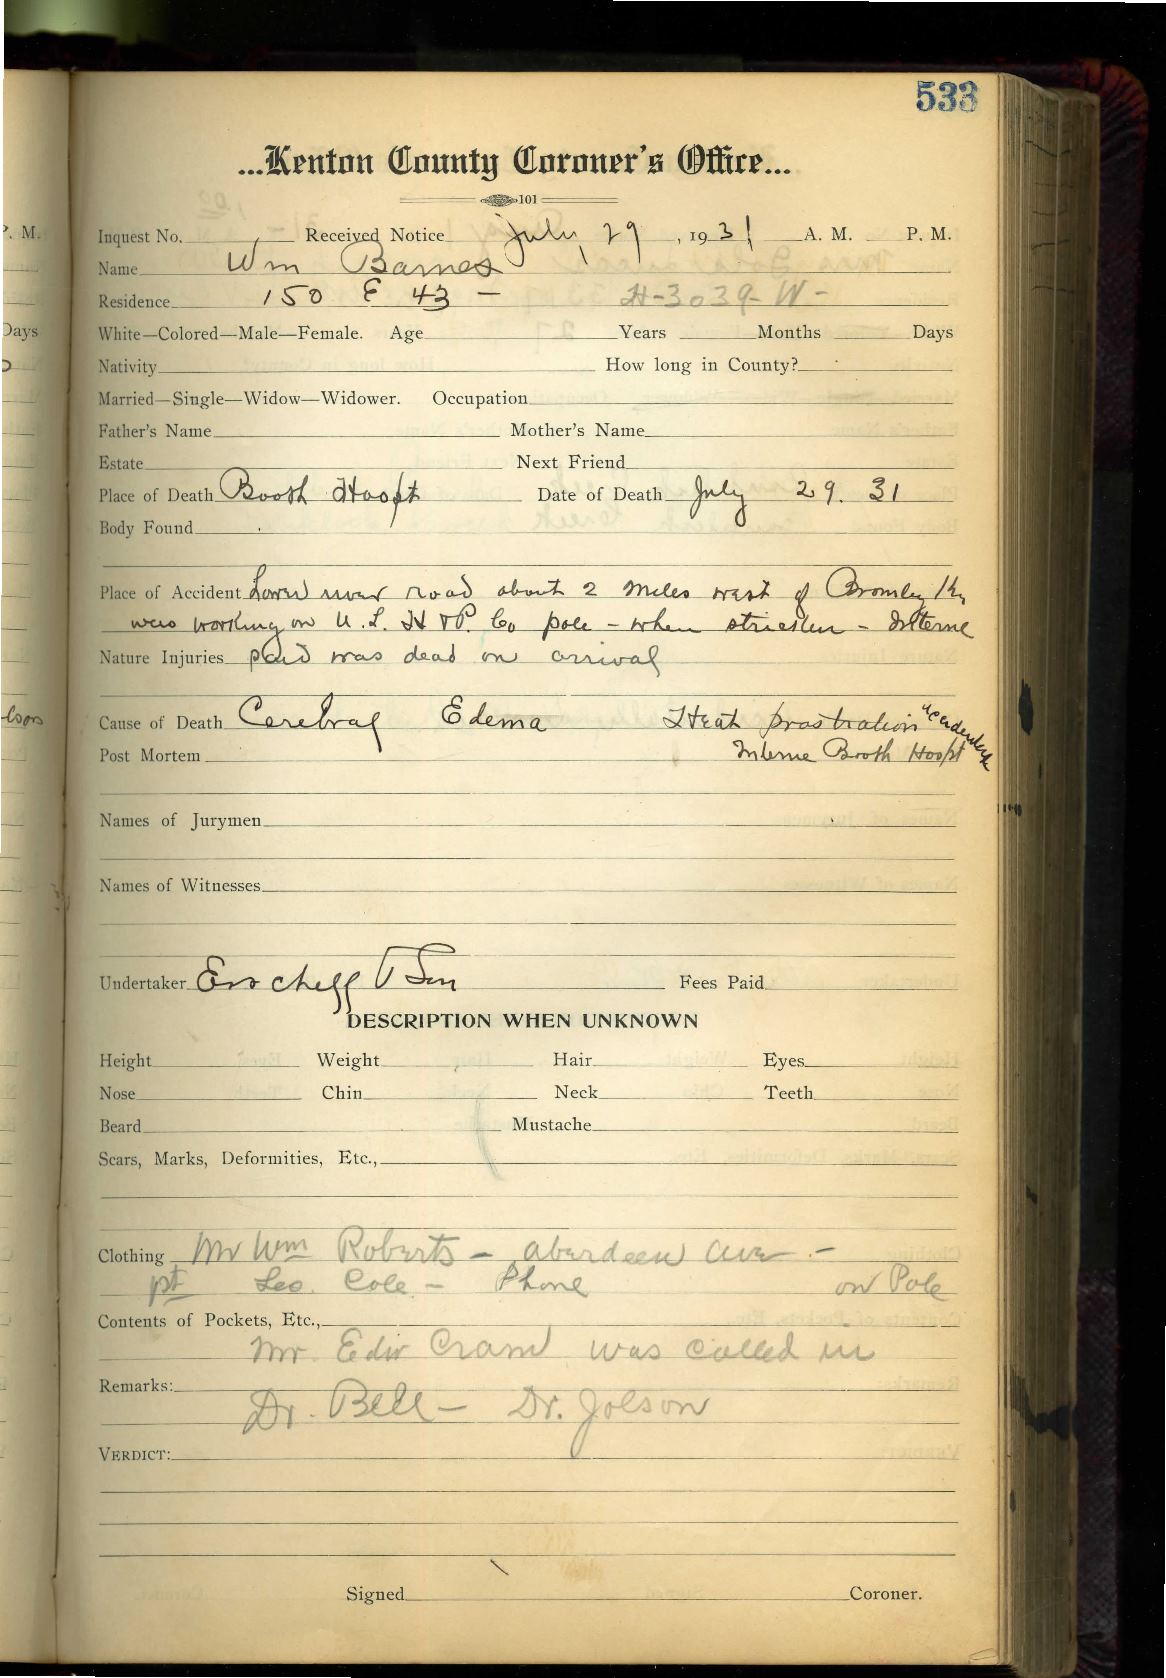 533
...Kenton County Coroner's Office...
101
P. M.
Inquest No. Received Notice July, 29, 1931 A. M. P. M.
Name Wm Barnes
Residence 150 E 43 — H-3039-W-
Days
White—Colored—Male—Female. Age Years Months Days
Nativity How long in County?
Married—Single—Widow—Widower. Occupation
Father's Name Mother's Name
Estate Next Friend
Place of Death Booth Hospt Date of Death July 29. 31
Body Found
Place of Accident Lower river road about 2 miles west of Bromley Ky
were working on U. L. H & P. Co pole - when stricken - Interne
Nature Injuries said was dead on arrival
Cause of Death Cerebral Edema Heat prostration accidental
Post Mortem Interne Booth Hospt
Names of Jurymen
Names of Witnesses
Undertaker & Son Fees Paid
DESCRIPTION WHEN UNKNOWN
Height Weight Hair Eyes
Nose Chin Neck Teeth
Beard Mustache
Scars, Marks, Deformities, Etc.,
Clothing Mr Wm Roberts - aberdeen ave -
pt Leo. Cole - Phone on Pole
Contents of Pockets, Etc.,
Mr. Edw Cram was called in
Remarks:
Dr. Bell - Dr. Jolson
VERDICT:
Signed Coroner.